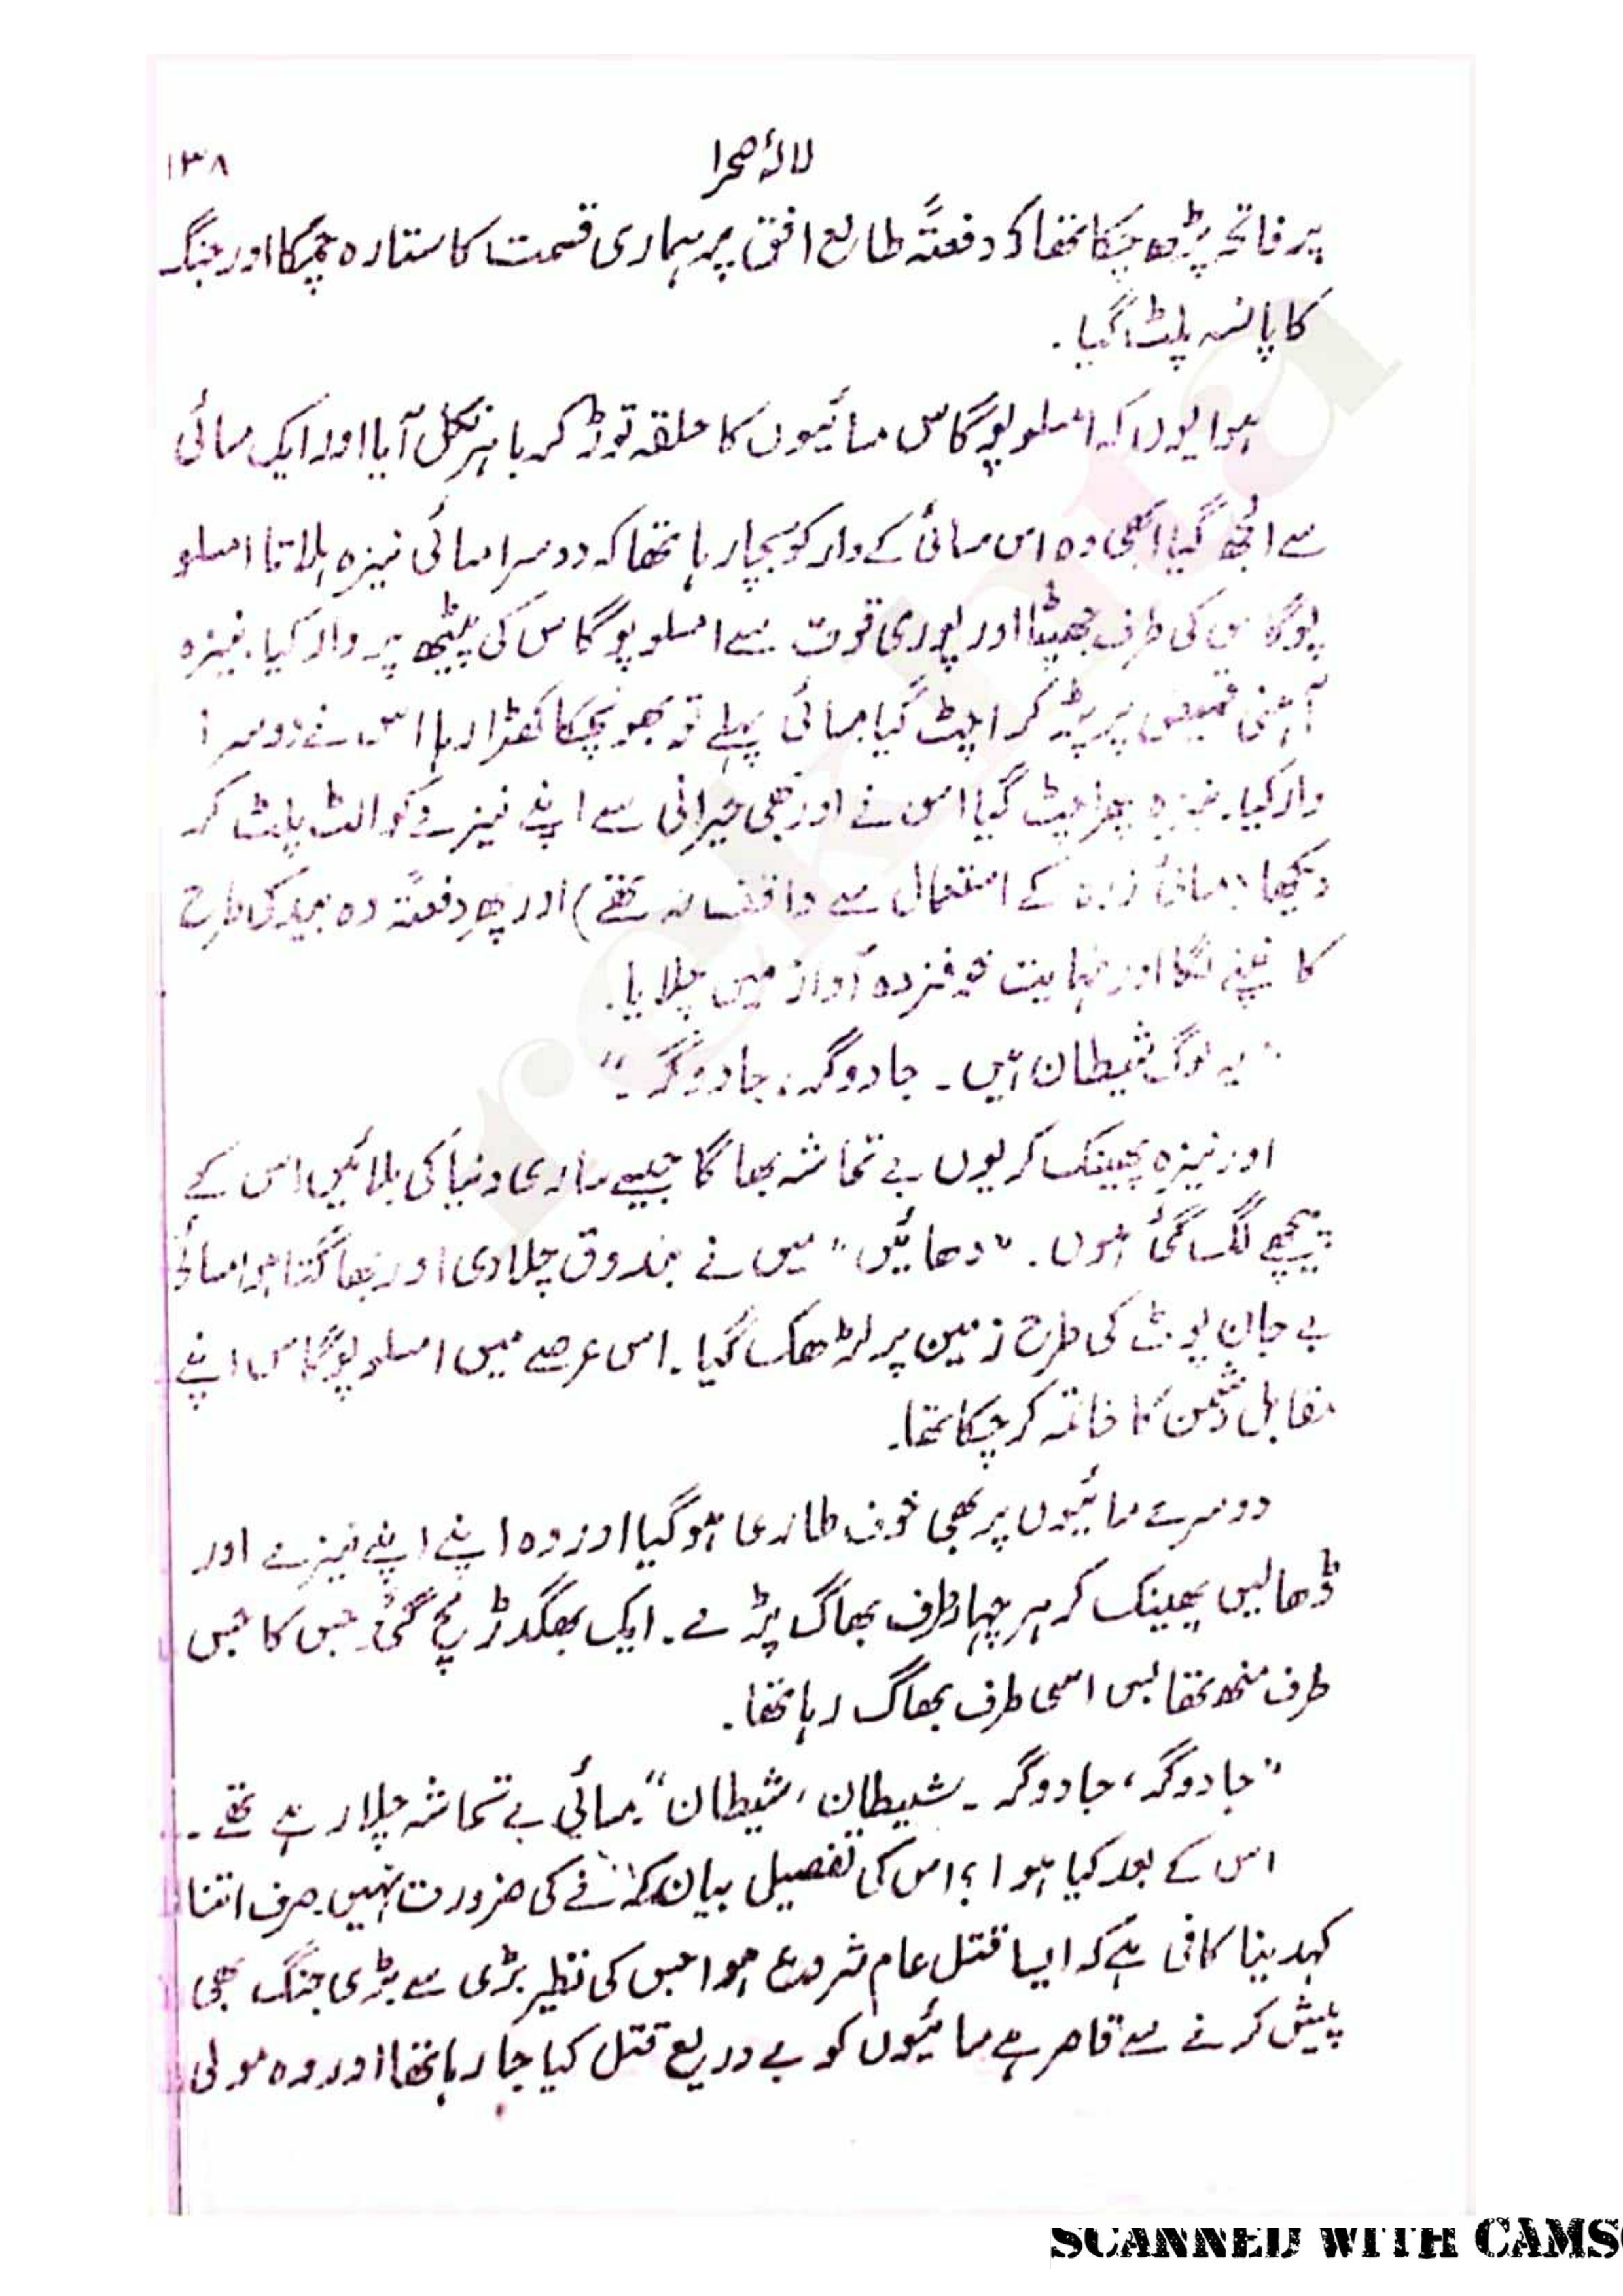 لالۂ صحرا ۱۳۸
پر فاتحہ پڑھ چکا تھا کہ دفعتہً طالع افق پر ہماری قسمت کا ستارہ چمکا اور جنگ
کا پانسہ پلٹ گیا۔
ہوا یوں کہ امسلوپوگاس مسائیوں کا حلقہ توڑ کر باہر نکل آیا اور ایک مسائی
سے الجھ گیا ابھی وہ اس مسائی کے وار کو بچا رہا تھا کہ دوسرا مسائی نیزہ ہلاتا امسلو
پوگاس کی طرف جھپٹا اور پوری قوت سے امسلوپوگاس کی پیٹھ پر وار کیا۔ نیزہ
آہنی قمیض پر پڑ کر اچٹ گیا مسائی پہلے تو بھونچکا کھڑا رہا اس نے دوسرا
وار کیا۔ نیزہ پھر اچٹ گیا اس نے اور بھی حیرانی سے اپنے نیزے کو الٹ پلٹ کر
دیکھا (مسائی زرہ کے استعمال سے واقف نہ تھے) اور پھر دفعتہً وہ بید کی طرح
کانپنے لگا اور نہایت خوفزدہ آواز میں چلایا۔
"یہ لوگ شیطان ہیں۔ جادوگر، جادوگر۔"
اور نیزہ پھینک کر یوں بے تحاشہ بھاگا جیسے ساری دنیا کی بلائیں اس کے
پیچھے لگ گئی ہوں۔ "دھائیں" میں نے بندوق چلا دی اور بھاگتا ہوا مسائی
بے جان پوٹ کی طرح زمین پر لڑھک گیا۔ اس عرصے میں امسلوپوگاس اپنے
مقابل دشمن کا خاتمہ کر چکا تھا۔
دوسرے مسائیوں پر بھی خوف طاری ہو گیا اور وہ اپنے اپنے نیزے اور
ڈھالیں پھینک کر ہر چہار طرف بھاگ پڑے۔ ایک بھگدڑ مچ گئی۔ جس کا جس
طرف منھ تھا بس اسی طرف بھاگ رہا تھا۔
"جادوگر، جادوگر۔ شیطان، شیطان" مسائی بے تحاشہ چلا رہے تھے۔
اس کے بعد کیا ہوا؟ اس کی تفصیل بیان کرنے کی ضرورت نہیں۔ صرف اتنا
کہدینا کافی ہے کہ ایسا قتل عام شروع ہوا جس کی نظیر بڑی سے بڑی جنگ بھی
پیش کرنے سے قاصر ہے مسائیوں کو بے دریغ قتل کیا جا رہا تھا اور وہ مولی
rekhta
SCANNED WITH CAMS